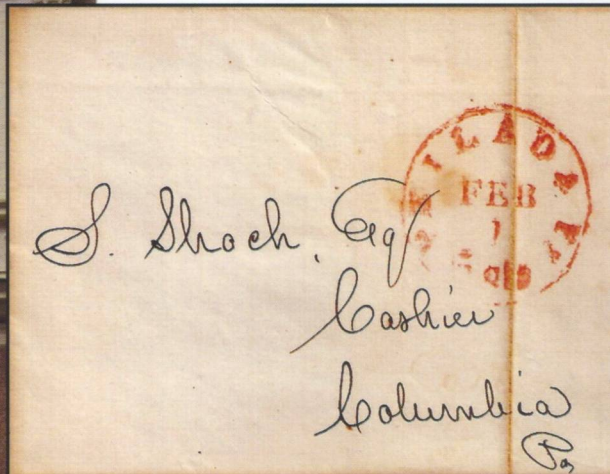 PHILADA. PA.
FEB
1
5 cts
S. Shoch, Esq
Cashier
Columbia
Pa